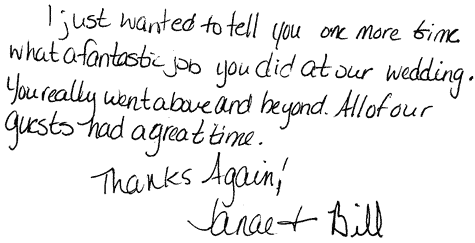 I just wanted to tell you one more time
what a fantastic job you did at our wedding.
You really went above and beyond. All of our
guests had a great time.
Thanks Again!
Janae + Bill